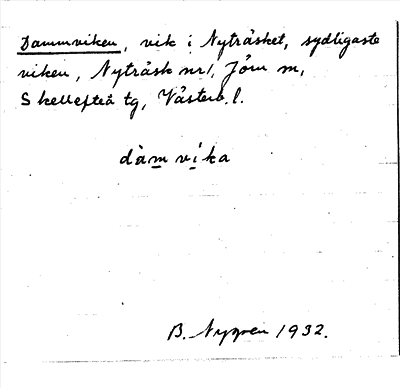 Dammviken, vik i Nyträsket, sydligaste
viken, Nyträsk nr 1, Jörn sn,
Skellefteå tg, Västerb. l.
dàmvi̍ka
B. Nygren 1932.